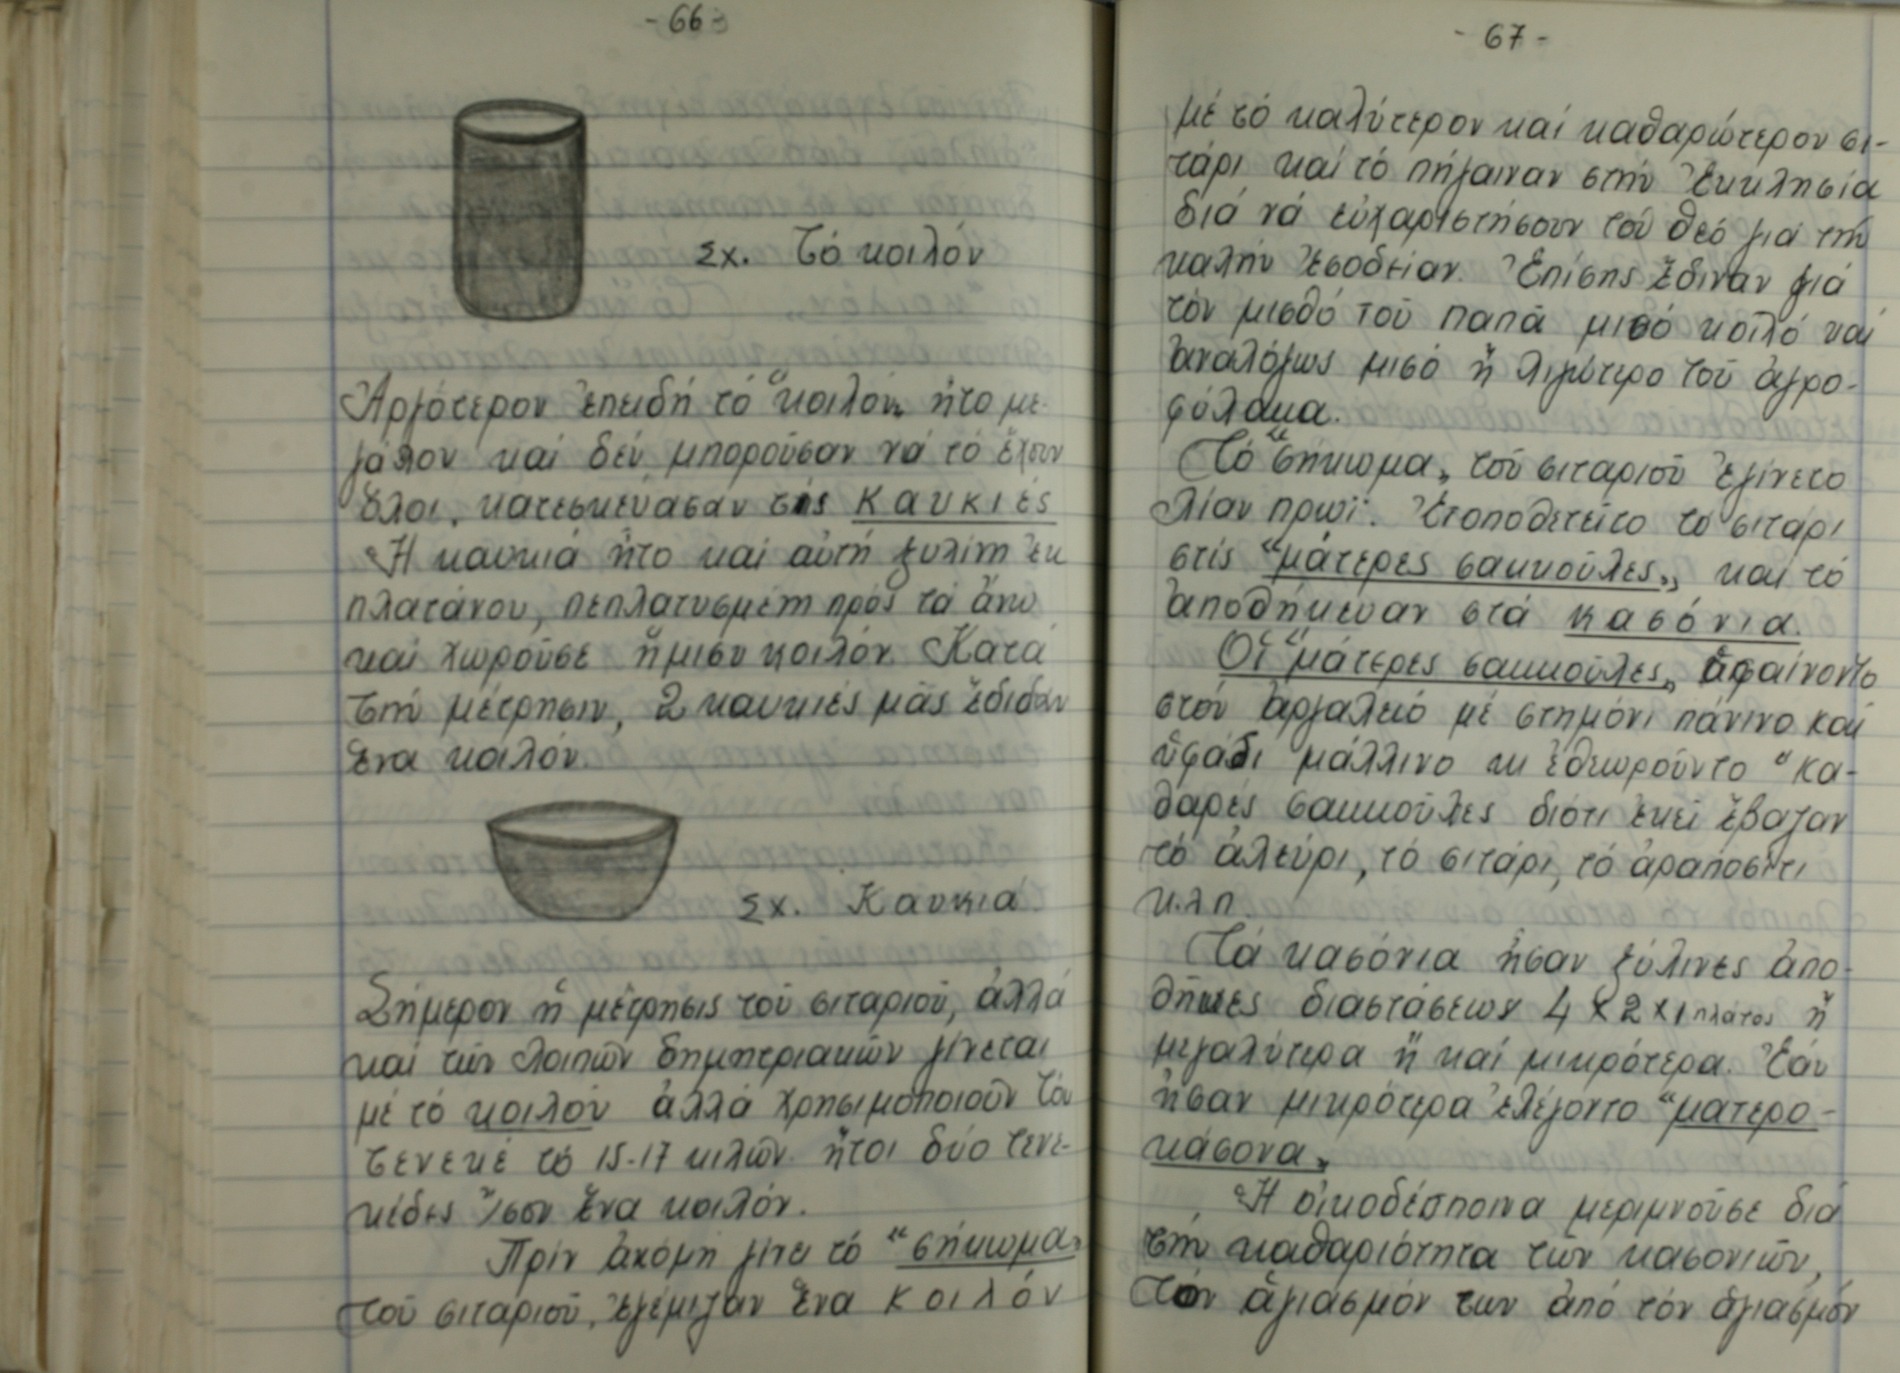 -66-
Σχ. Τό κοιλόν
Ἀργότερον ἐπειδή τό "κοιλόν„ ἦτο με-
γάλον καί δέν μποροῦσαν νά τό ἔχουν
ὅλοι, κατεσκεύασαν τίς καυκιές
Ἡ καυκιά ἦτο καί αὐτή ξυλίνη ἐκ
πλατάνου, πεπλατυσμένη πρός τά ἄνω
καί χωροῦσε ἥμισυ κοιλόν. Κατά
τήν μέτρησιν, 2 καυκιές μᾶς ἔδιδαν
ἕνα κοιλόν.
Σχ. Καυκιά
Σήμερον ἡ μέτρησις τοῦ σιταριοῦ, ἀλλά
καί τῶν λοιπῶν δημητριακῶν γίνεται
μέ τό κοιλόν ἀλλά χρησιμοποιοῦν τόν
τενεκέ τό 15-17 κιλῶν ἤτοι δύο τενε-
κέδες ἴσον ἕνα κοιλόν.
Πρίν ἀκόμη γίνει τό "σήκωμα„
τοῦ σιταριοῦ, ἐγέμιζαν ἕνα κοιλόν
-67-
μέ τό καλύτερον καί καθαρώτερον σι-
τάρι καί τό πήγαιναν στήν Ἐκκλησία
διά νά εὐχαριστήσουν τόν Θεό γιά τήν
καλήν ἐσοδείαν. Ἐπίσης ἔδιναν γιά
τόν μισθό τοῦ παπᾶ μισό κοιλό καί
ἀναλόγως μισό ἤ λιγώτερο τοῦ ἀγρο-
φύλακα.
Τό "σήκωμα„ τοῦ σιταριοῦ ἐγίνετο
λίαν πρωΐ. Ἐτοποθετεῖτο τό σιτάρι
στίς "μάτερες σακκοῦλες„ καί τό
ἀποθήκευαν στά κασόνια.
Οἱ "μάτερες σακκοῦλες„ ὑφαίνοντο
στόν ἀργαλειό μέ στημόνι πάνινο καί
ὑφάδι μάλλινο κι ἐθεωροῦντο "κα-
θαρές σακκοῦλες διότι ἐκεῖ ἔβαζαν
τό ἀλεύρι, τό σιτάρι, τό ἀραποσίτι
κ.λ.π.
Τά κασόνια ἦσαν ξύλινες ἀπο-
θῆκες διαστάσεων 4 x 2 x 1 πλάτος ἤ
μεγαλύτερα ἤ καί μικρότερα. Ἐάν
ἦσαν μικρότερα ἐλέγοντο "ματερο-
κάσονα„
Ἡ οἰκοδέσποινα μεριμνοῦσε διά
τήν καθαριότητα τῶν κασονιῶν,
τόν ἁγιασμόν των ἀπό τόν ἁγιασμόν